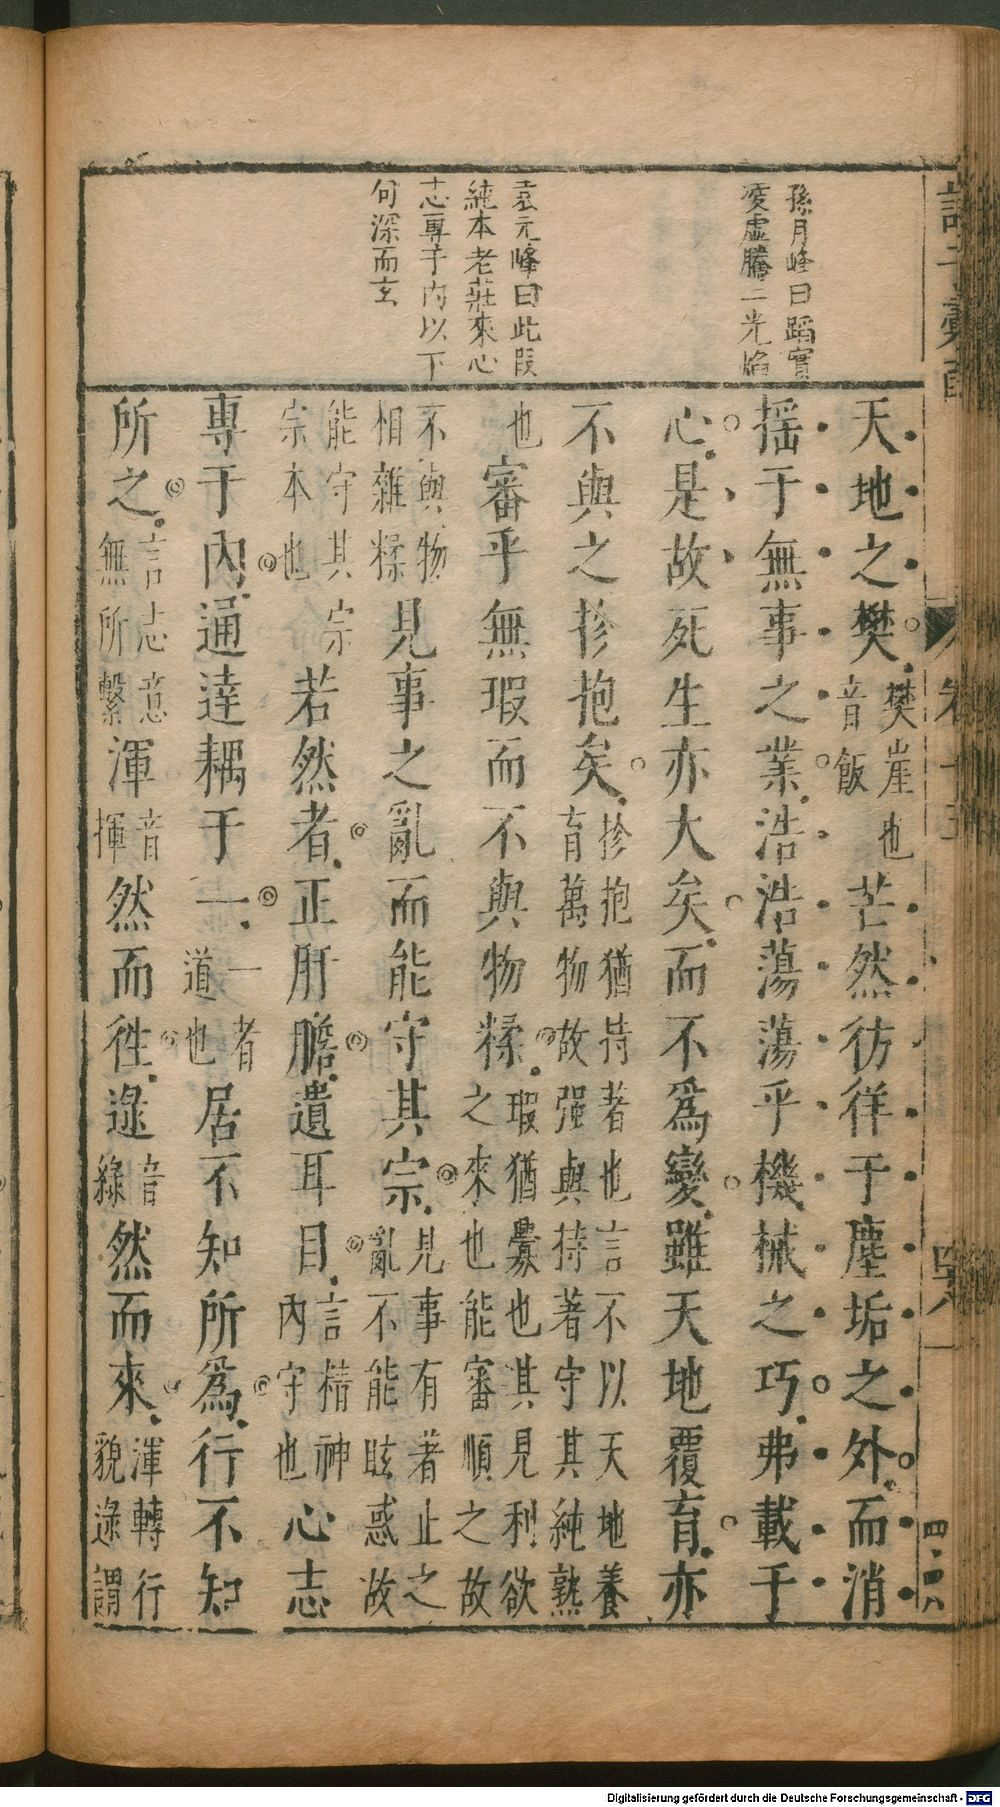 孫月峰曰蹈實
凌虛騰二光焰
袁元峰曰此叚
純本老莊來心
志專于內以下
句深而玄
天地之樊樊崖也音飯芒然彷徉于塵垢之外而消
搖于無事之業浩浩蕩蕩乎機械之巧弗載于
心是故死生亦大矣而不爲變雖天地覆育亦
不與之抮抱矣抮抱猶持著也言不以天地養育萬物故强與持著守其純熟
也審乎無瑕而不與物糅瑕猶釁也其見利欲之來也能審順之故
不與物相雜糅見事之亂而能守其宗見事有著止之亂不能眩惑故
能守其宗宗本也若然者正肝膽遺耳目言精神內守也心志
專于內通達耦于一一者道也居不知所爲行不知
所之言志意無所繫渾音揮然而徃逯音綠然而來渾轉行貌逯謂
卷十五
四八
四·四八
Digitalisierung gefördert durch die Deutsche Forschungsgemeinschaft - DFG